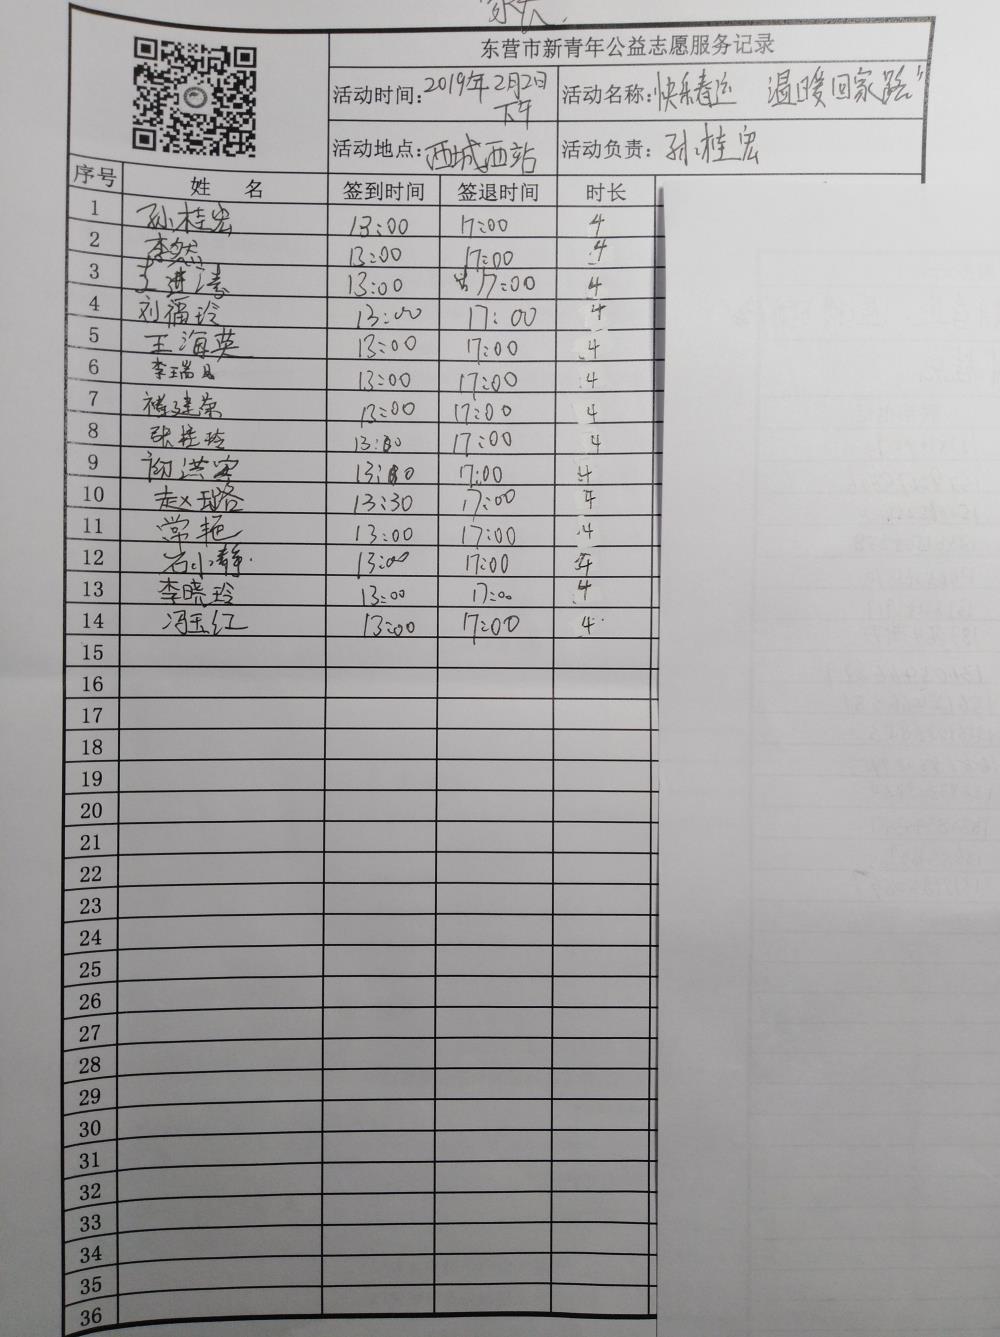 家长
东营市新青年公益志愿服务记录
活动时间: 2019年2月2日下午 活动名称: 快乐春运 温暖回家路"
活动地点: 西城西站 活动负责: 孙桂宏
序号 姓 名 签到时间 签退时间 时长
1 孙桂宏 13:00 17:00 4
2 李然 13:00 17:00 4
3 王进涛 13:00 17:00 4
4 刘福玲 13:00 17:00 4
5 王海英 13:00 17:00 4
6 李瑞 13:00 17:00 4
7 建荣 13:00 17:00 4
8 张桂玲 13:00 17:00 4
9 洪 13:00 17:00 4
10 赵璐 13:30 17:00 4
11 常艳 13:00 17:00 4
12 石小静 13:00 17:00 4
13 李晓玲 13:00 17:00 4
14 冯玉红 13:00 17:00 4
15
16
17
18
19
20
21
22
23
24
25
26
27
28
29
30
31
32
33
34
35
36